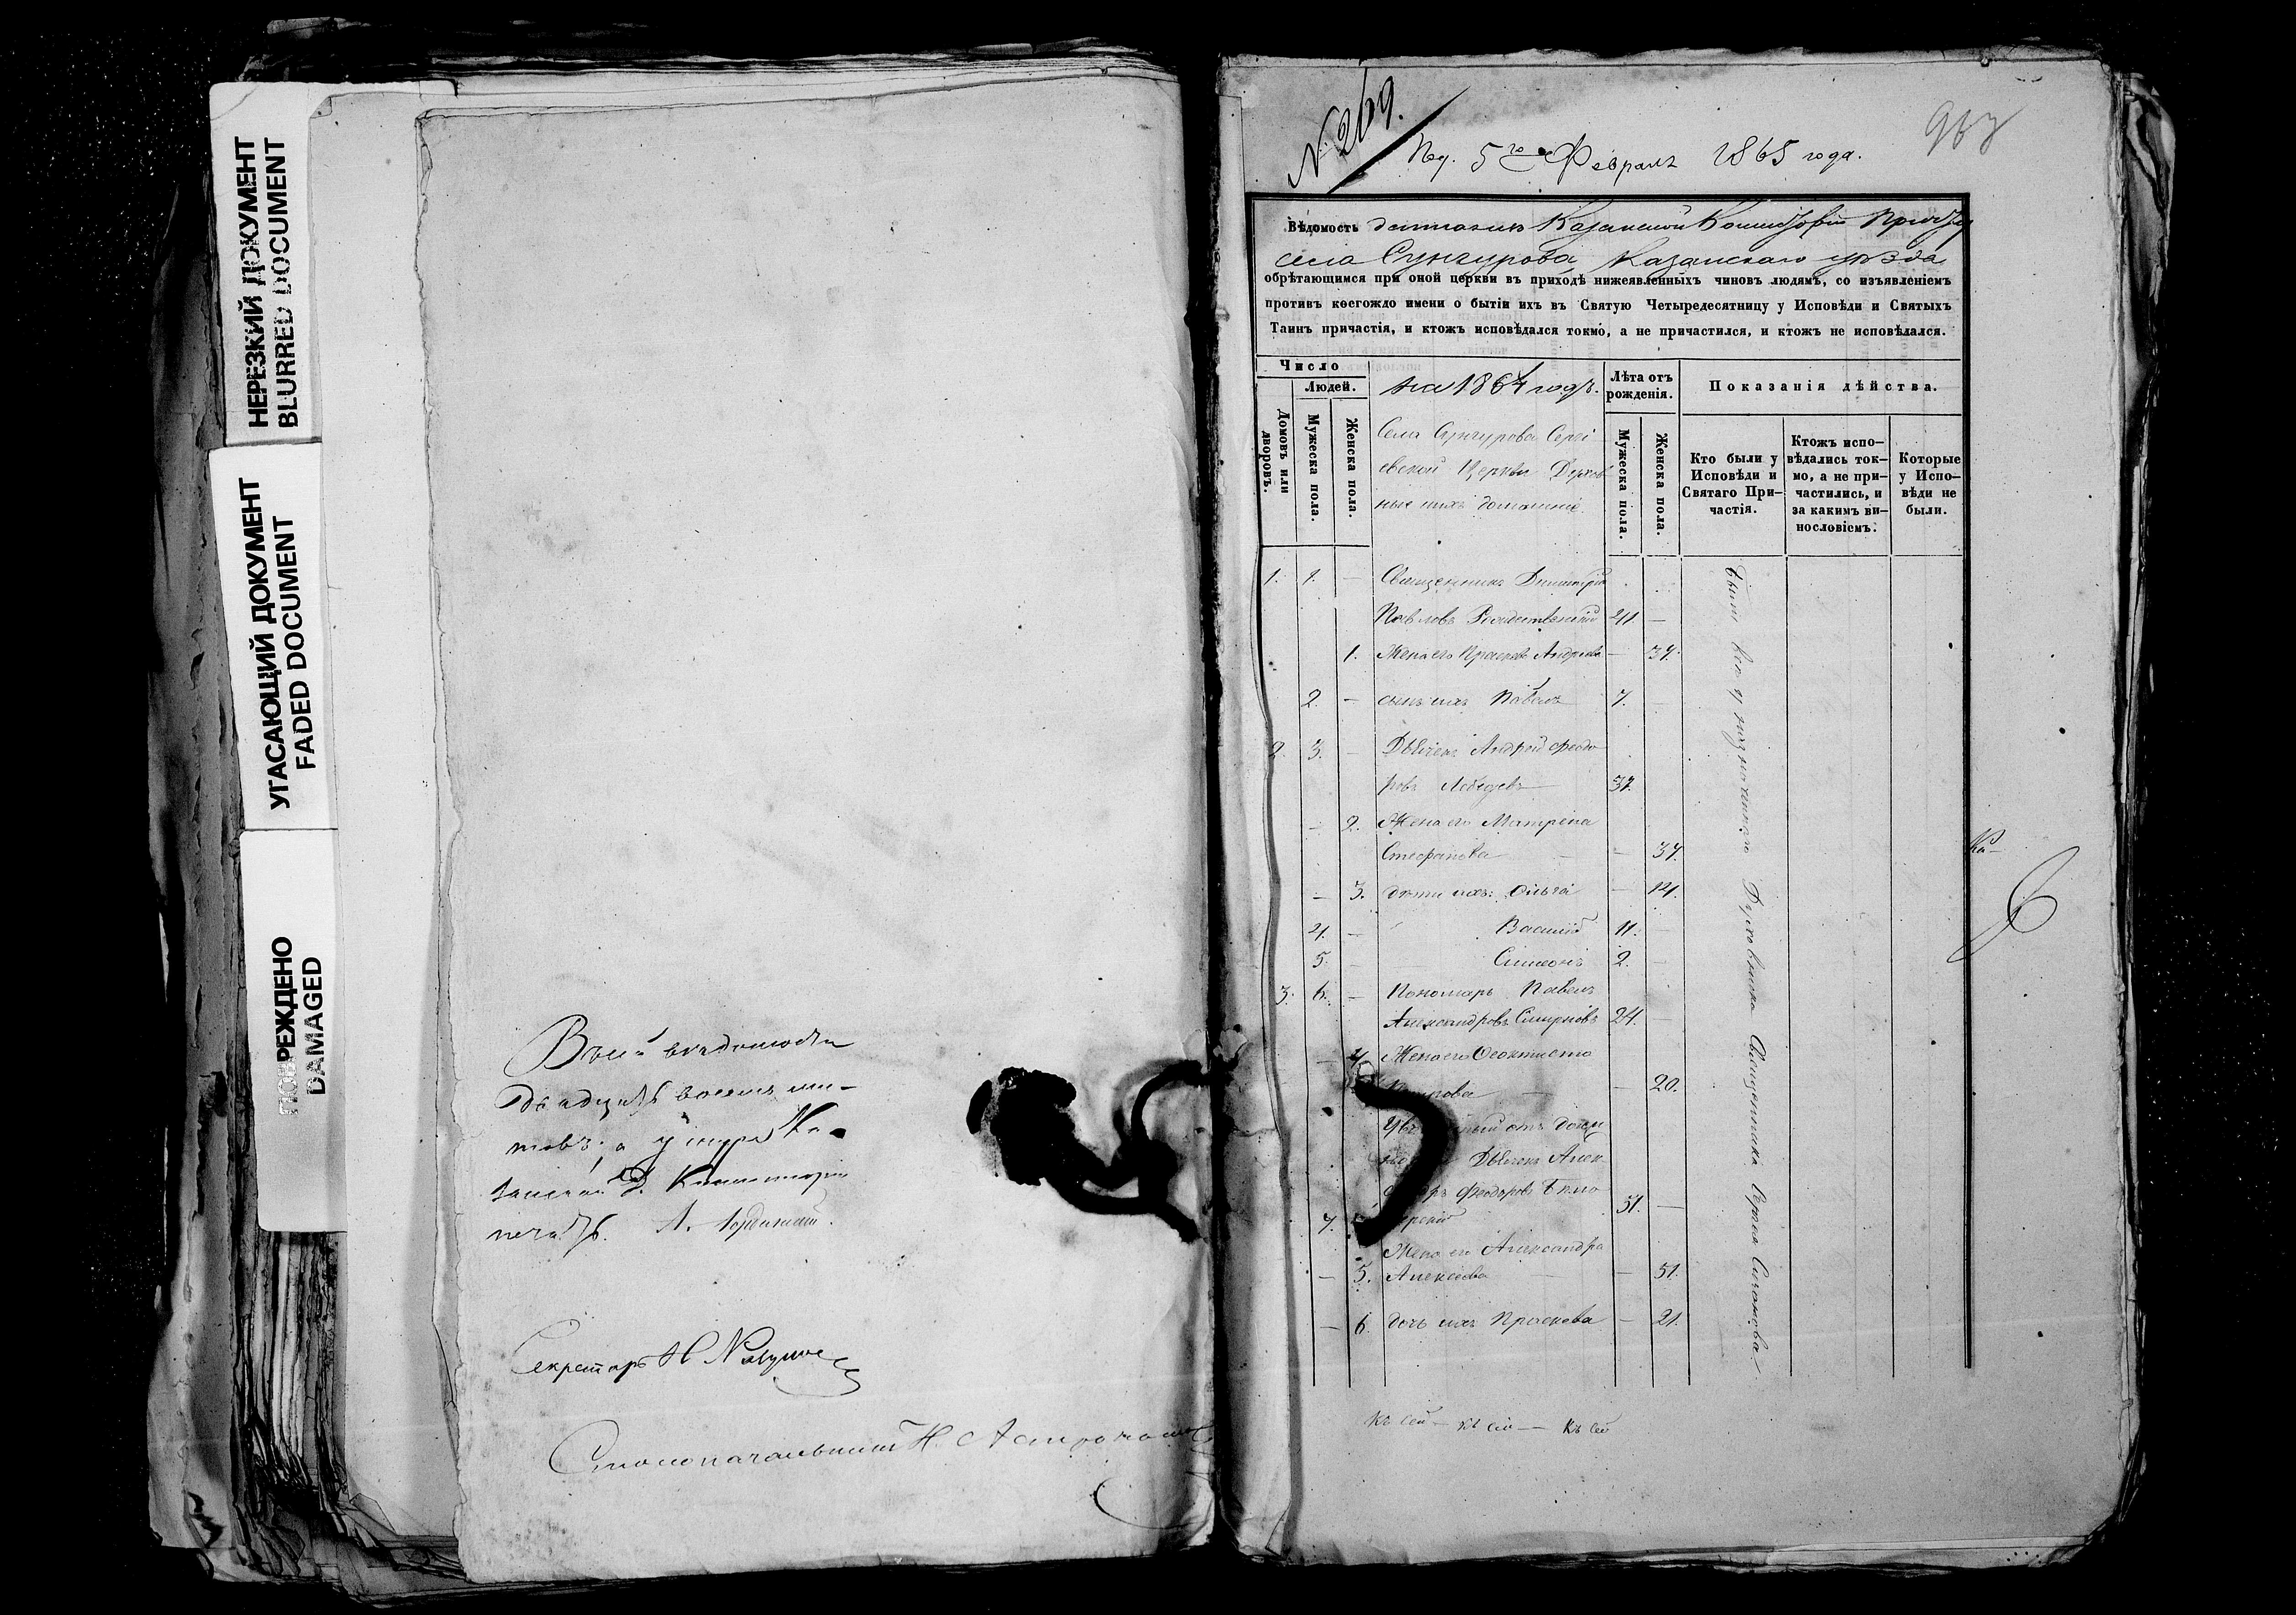 НЕРЕЗКИЙ ДОКУМЕНТ
BLURRED DOCUMENT
УГАСАЮЩИЙ ДОКУМЕНТ
FADED DOCUMENT
ПОВРЕЖДЕНО
DAMAGED
двадцать восемь ли-
стовъ, а у
Консисторіи
печать.
Секретарь Н
Столоначальникъ Н.
N. 269.
Пол. 5го Февраля 1865 года.
963
Вѣдомость Казанской Консисторіи
села Сунчурова Казанскаго уѣзда
обрѣтающимся при оной церкви въ приходѣ нижеявленныхъ чиновъ людямъ, со изъявленіемъ
противъ коегождо имени о бытіи ихъ въ Святую Четыредесятницу у Исповѣди и Святыхъ
Таинъ причастія, и ктожъ исповѣдался токмо, а не причастился, и ктожъ не исповѣдался.
Число
Людей.
Домовъ или дворовъ.
Мужеска пола.
Женска пола.
на 1864 годъ.
Села Сунчурова Серги
евской Церкви Духов
ные и ихъ домашніе.
Лѣта отъ рожденія.
Мужеска пола.
Женска пола.
Показанія дѣйства.
Кто были у Исповѣди и Святаго При-частія.
Ктожъ испо-вѣдались ток-мо, а не при-частились, и за какимъ ви-нословіемъ.
Которые у Испо-вѣди не были.
1. 1. — Священникъ Димитрій
Павловъ Рождественскій 41. —
1. Жена его Прасковья Андреева — 37.
2. — сынъ ихъ Павелъ 7. —
2. 3. — Дьячекъ Андрей Фео­до
ровъ Лебедевъ 37.
— 2. Жена его Матрена
Стефанова — 37.
— 3. дѣти ихъ: Ольга — 14.
4. — Василій 11. —
5. — Симеонъ 2. —
3. 6. — Пономарь Павелъ
Александровъ Смирновъ 24. —
— 4. Жена его Феоктиста
— 20.
отъ долж
Дьячекъ Алек
Феодоровъ Бѣло
7. 51. —
Жена его Александра
— 5. Алексѣева — 51.
— 6. дочь ихъ Прасковья — 21.
Были всѣ у Духовника Священника Сергія
Ка-
Къ сей — Къ сей — Къ сей